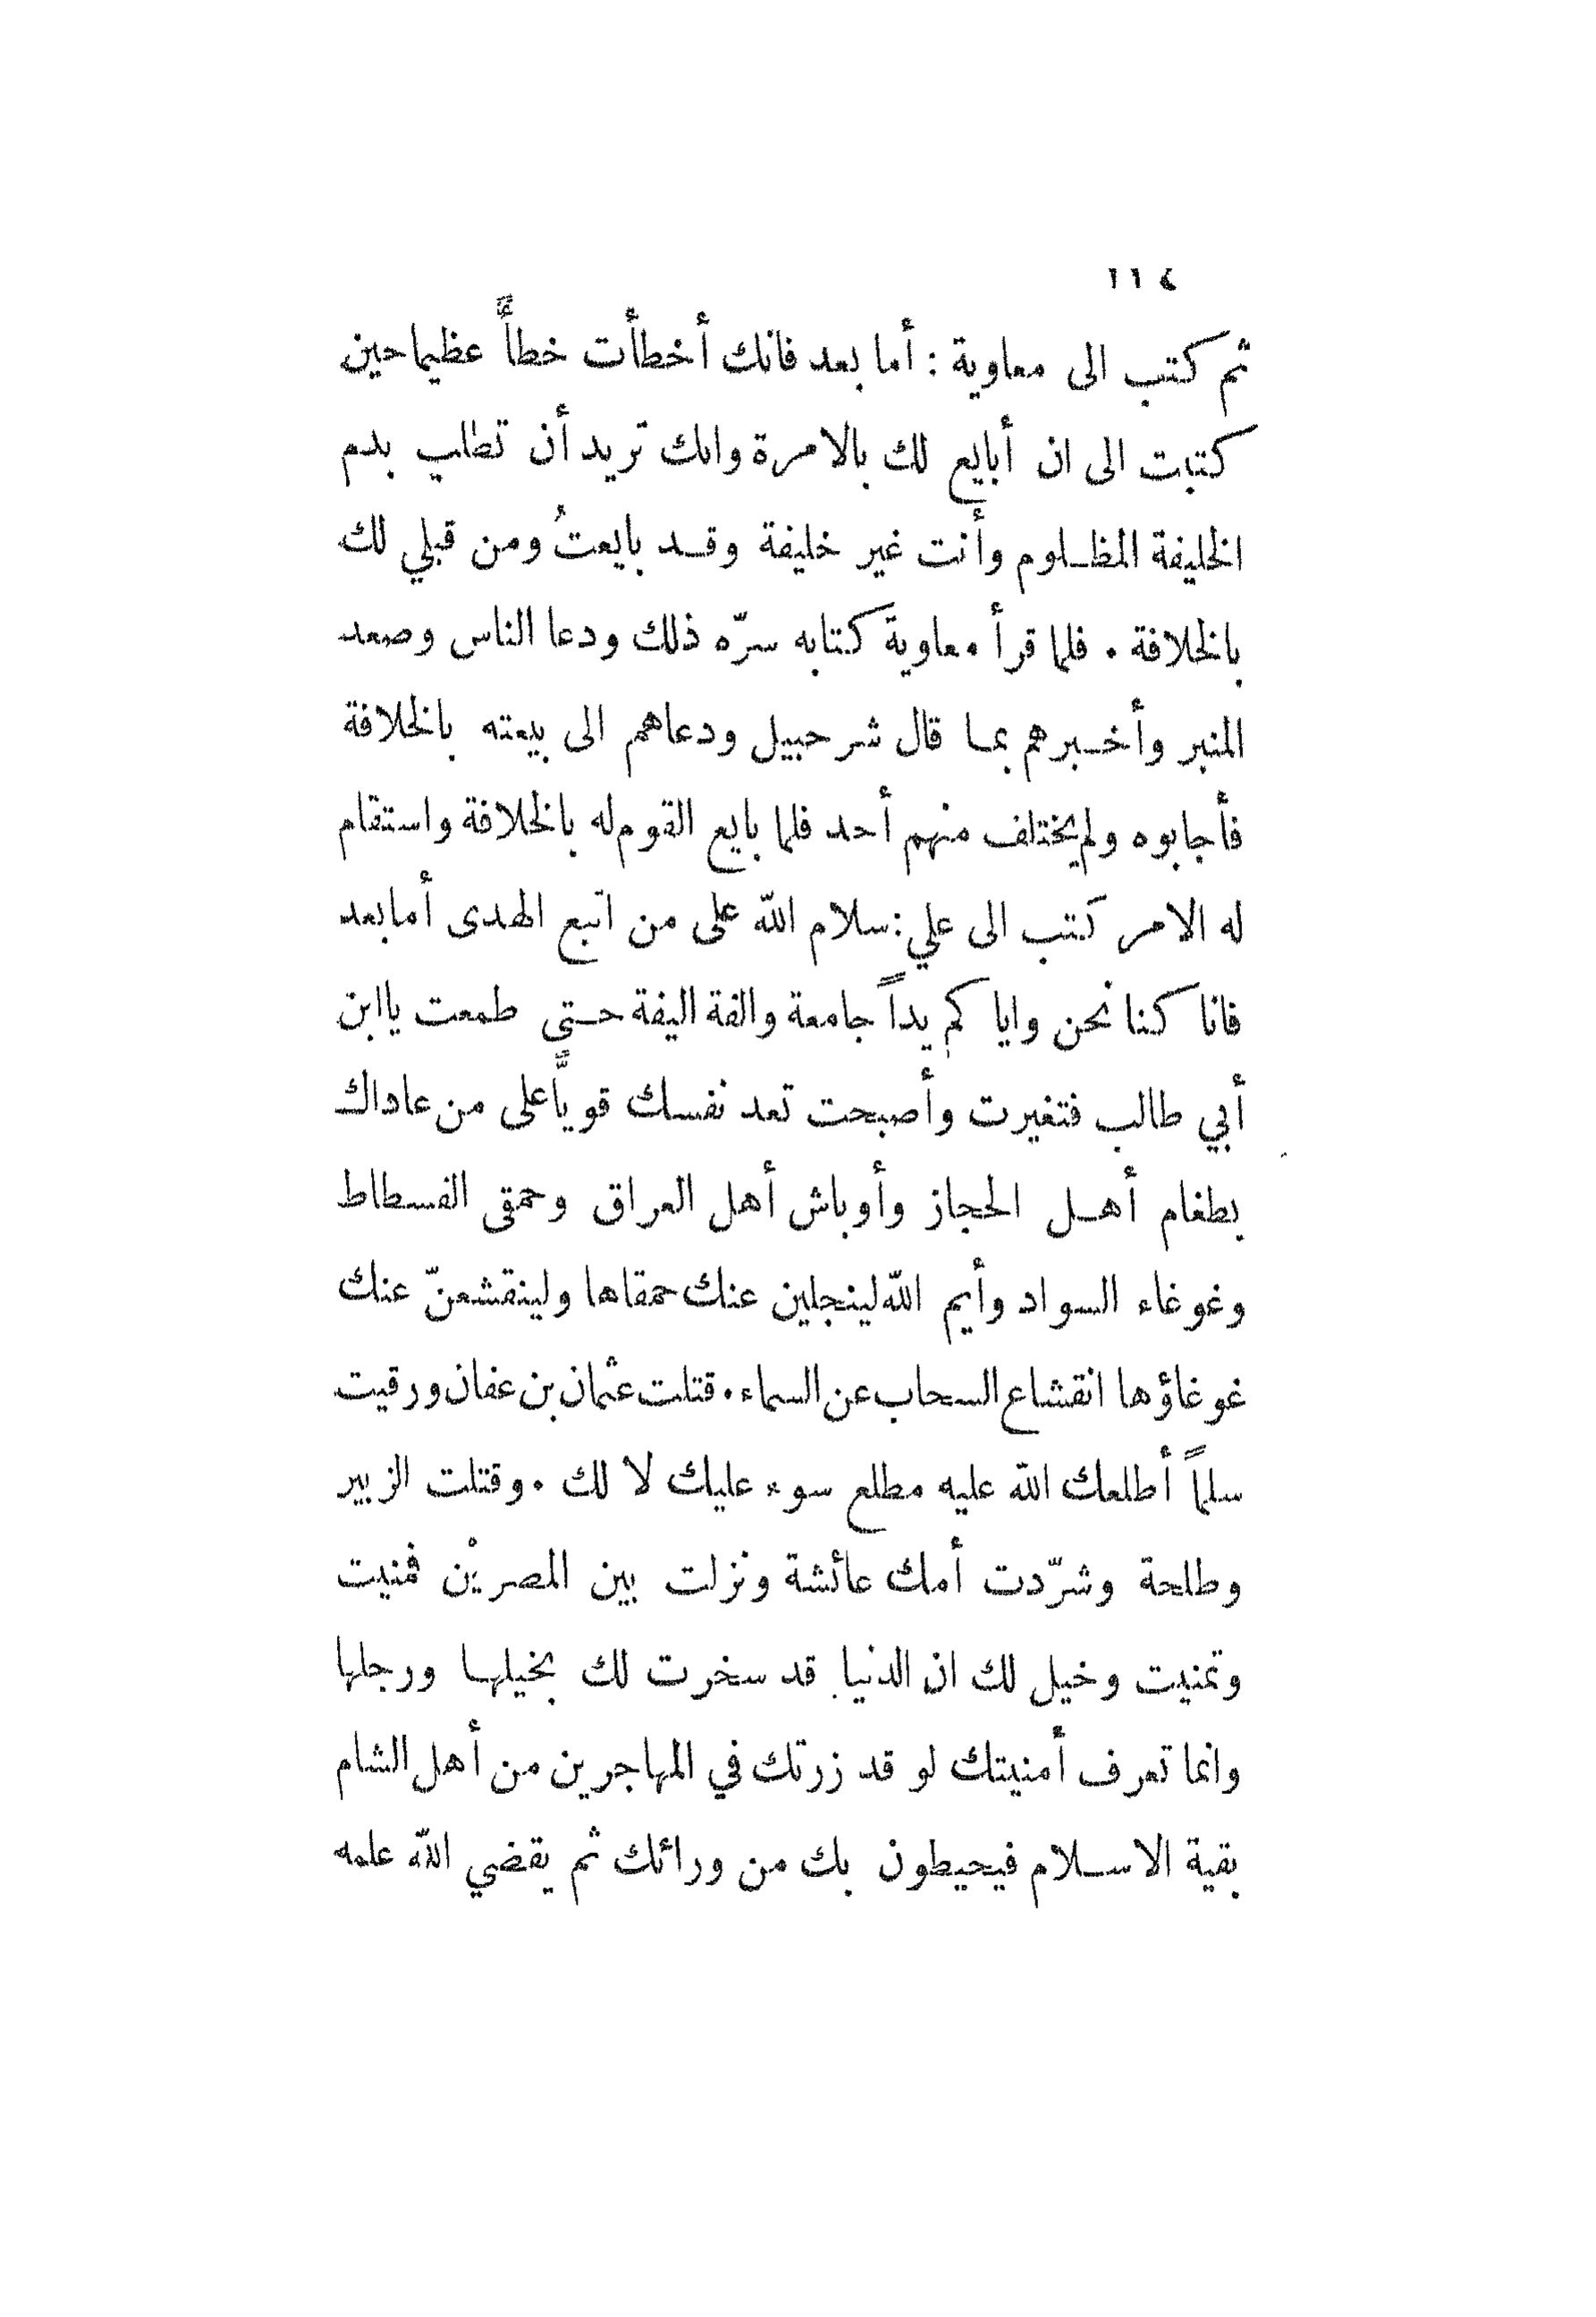 ١١٤
ثم كتب الى معاوية : أما بعد فانك أخطأت خطأً عظيما حين
كتبت الى ان أبايع لك بالامرة وانك تريد أن تطلب بدم
الخليفة المظلوم وأنت غير خليفة وقد بايعتُ ومن قبلي لك
بالخلافة . فلما قرأ معاوية كتابه سرّه ذلك ودعا الناس وصعد
المنبر وأخبرهم بما قال شرحبيل ودعاهم الى بيعته بالخلافة
فأجابوه ولم يختلف منهم أحد فلما بايع القوم له بالخلافة واستقام
له الامر كتب الى علي : سلام اللّه على من اتبع الهدى أما بعد
فانا كنا نحن واياكم يداً جامعة والفة اليفة حتى طمعت ياابن
أبي طالب فتغيرت وأصبحت تعد نفسك قويًّا على من عاداك
بطغام أهل الحجاز وأوباش أهل العراق وحمقى الفسطاط
وغوغاء السواد وأيم اللّه لينجلين عنك حمقاها ولينقشعنّ عنك
غوغاؤها انقشاع السحاب عن السماء . قتلت عثمان بن عفان ورقيت
سلماً أطلعك اللّه عليه مطلع سوء عليك لا لك . وقتلت الزبير
وطلحة وشرّدت أمك عائشة ونزلت بين المصريْن فمنيت
وتمنيت وخيل لك ان الدنيا قد سخرت لك بخيلها ورجلها
وانما تعرف أمنيتك لو قد زرتك في المهاجرين من أهل الشام
بقية الاسلام فيحيطون بك من ورائك ثم يقضي اللّه علمه